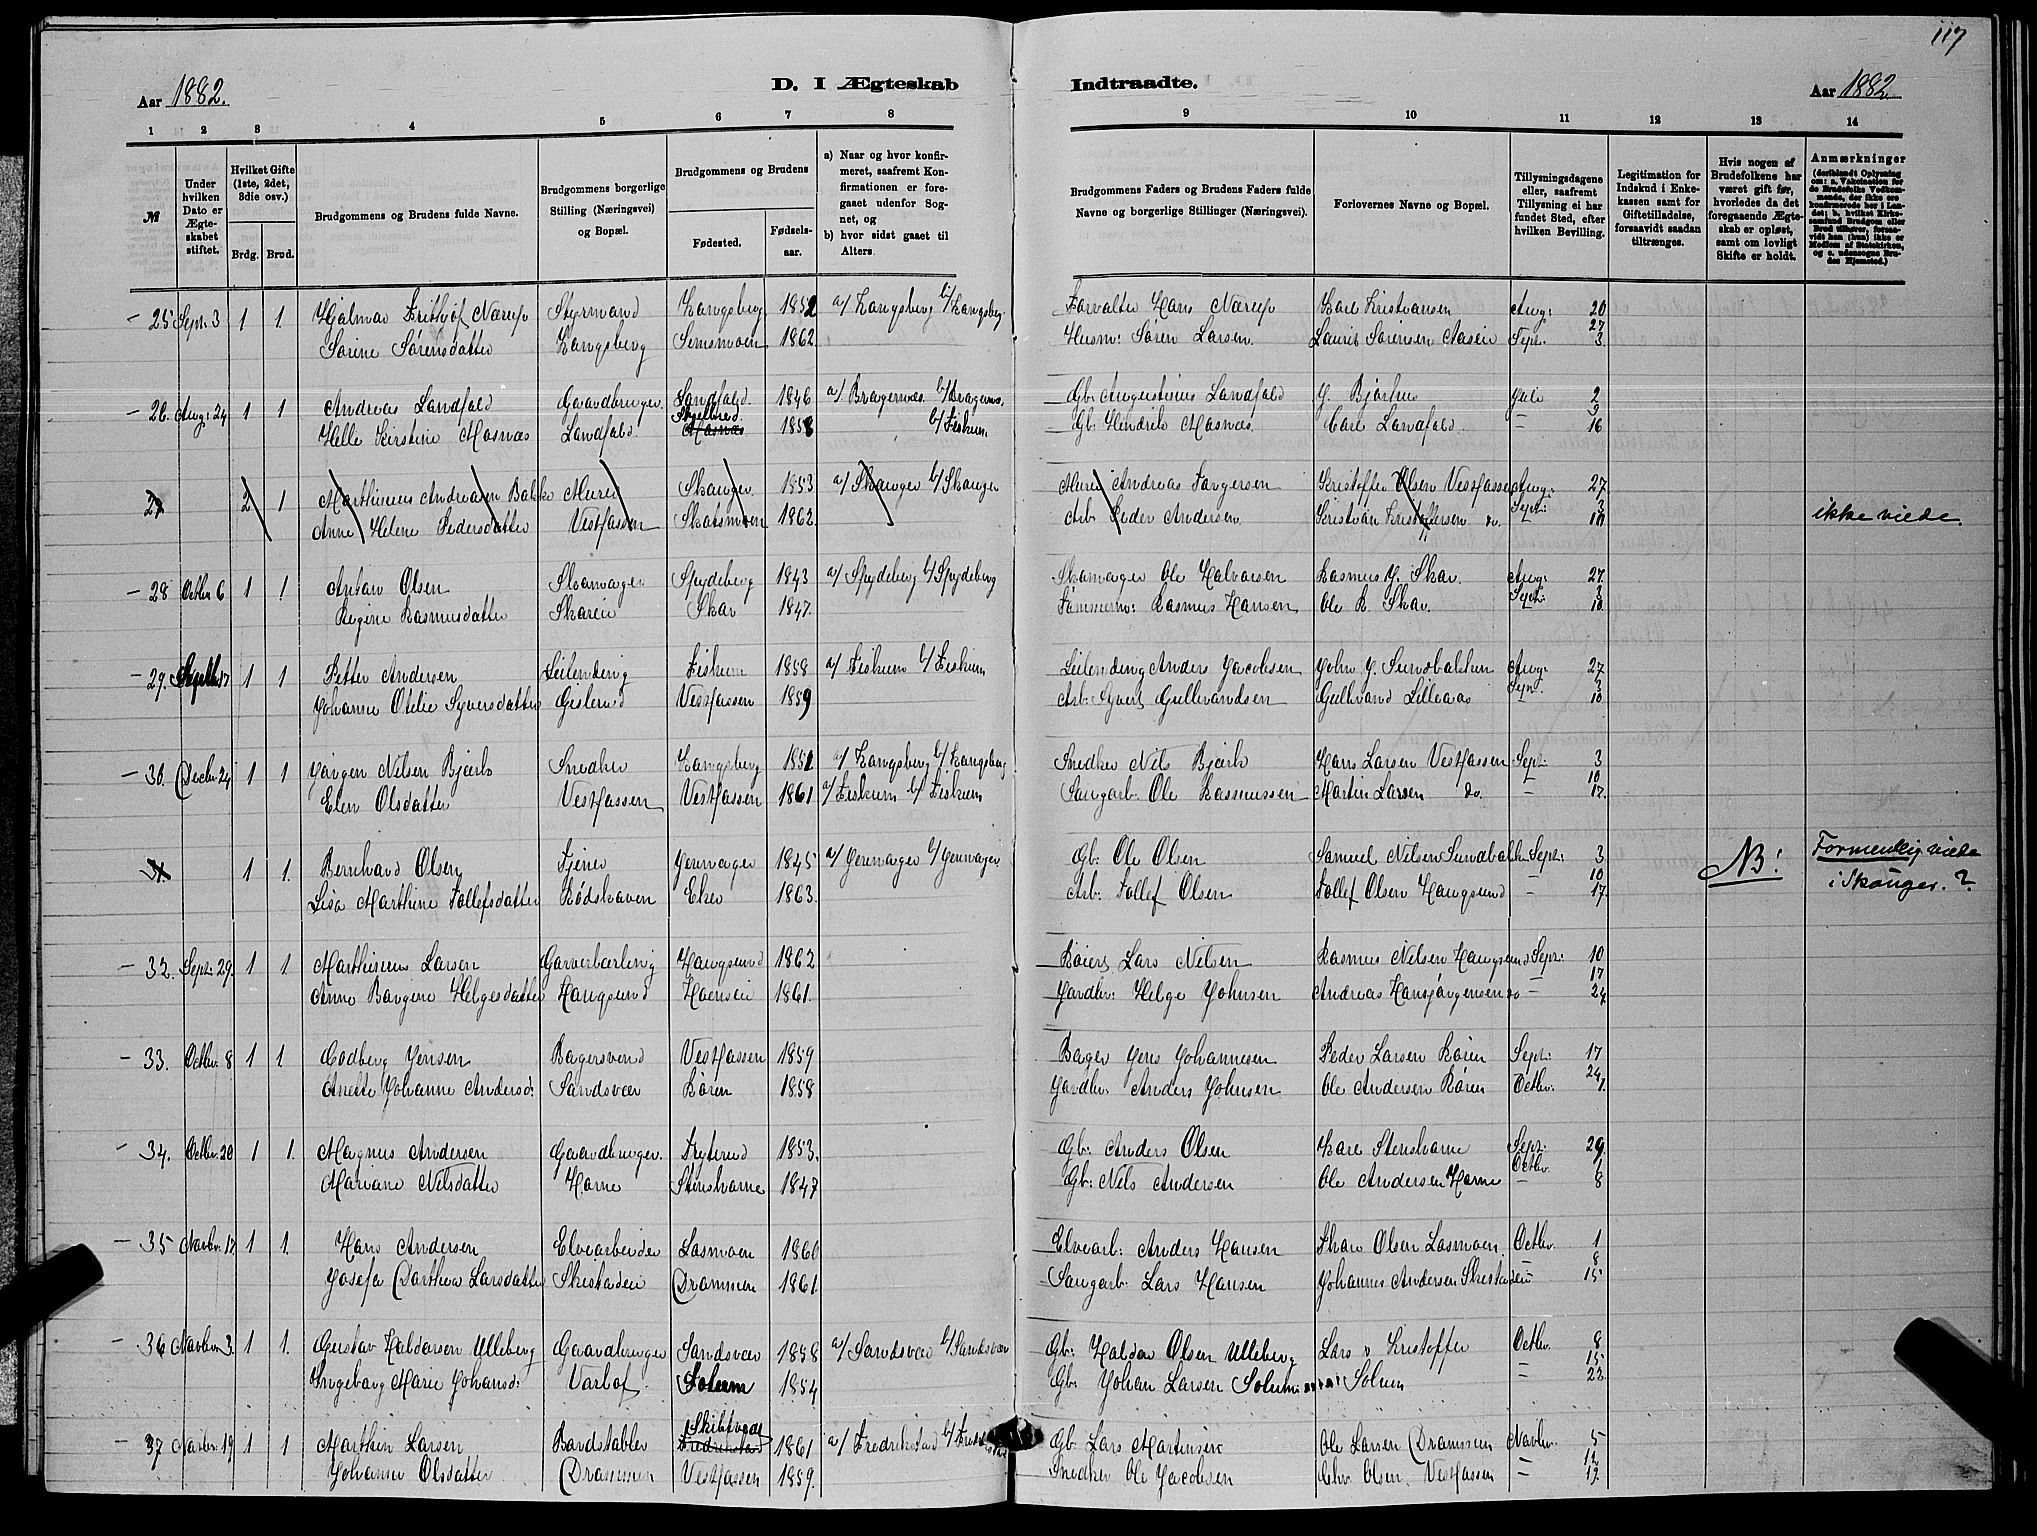 117
Aar 1882.
D. I Ægteskab Indtraadte.
Aar 1882
1 2 3 4 5 6 7 8 9 10 11 12 13 14
№
Under hvilken Dato er Ægteskabet stiftet.
Hvilket Gifte (1ste, 2det, 3die osv.)
Brdg. Brud.
Brudgommens og Brudens fulde Navne.
Brudgommens borgerlige Stilling (Næringsvei) og Bopæl.
Brudgommens og Brudens
Fødested. Fødselsaar.
a) Naar og hvor konfirmeret, saafremt Konfirmationen er foregaaet udenfor Sognet, og
b) hvor sidst gaaet til Alters.
Brudgommens Faders og Brudens Faders fulde Navne og borgerlige Stillinger (Næringsvei).
Forlovernes Navne og Bopæl.
Tillysningsdagene eller, saafremt Tillysning ei har fundet Sted, efter hvilken Bevilling.
Legitimation for Indskud i Enkekassen samt for Giftetilladelse, forsaavidt saadan tiltrænges.
Hvis nogen af Brudefolkene har været gift før, hvorledes da det foregaaende Ægteskab er opløst, samt om lovligt Skifte er holdt.
Anmærkninger (deriblandt Oplysning om: a. Vakcination for de Brudefolks Vedkommende, der ikke ere konfirmerede her i Landet; b. hvilket Kirkesamfund Brudgom eller Brud tilhører, forsaavidt han (hun) ikke er Medlem af Statskirken, og c. udensogns Brudes Hjemsted.)
25 Sept. 3 1 1. Hjalmar Frithjof Nærup Styrmand Kongsberg 1852 a/ Kongsberg b/ Kongsberg Forvalter Hans Nærup Karl Kristiansen Aug: 20
27
Sørine Sørensdatter Kongsberg Semsmoen 1862. Husm: Søren Larsen Laurits Sørensen Aasen Sept. 3
26. Aug: 24 1 1 Andreas Landfald Gaardbruger Landfald 1846 a/ Bragernæs b/ Bragernæs. Gb. Augustinus Landfald J. Bjørhus Juli 2
9
Helle Kirstine Hasnæs Landfald Hasnæs 1858 b/ Fiskum Gb: Hendrik Hasnæs Carl Landfald — 16
27 2 1 Marthinius Andreasen Bakke Murer Skouger 1853 a/ Skouger b/ Skouger Murer Andreas Torgersen Kristoffer Olsen Vestfossen Aug: 27
Sept: 3
Anne Helene Pedersdatter Vestfossen Skotsmoen 1862. Arb: Peder Andersen Kristian Kristoffersen do. — 10 ikke viede.
28 Octbr 6 1 1 Anton Olsen Skomager Spydeberg 1843 a/ Spydeberg b/ Spydeberg Skomager Ole Halvorsen Rasmus J. Skar. Aug: 27.
Sept: 3
Regine Rasmusdatter Skaren Skar 1847. Tømmerm: Rasmus Hansen Ole R. Skar. 10
29. Septbr 17 1 1 Petter Andersen Leilending Fiskum 1858 a/ Fiskum b/ Fiskum Leilending Anders Jacobsen John J. Sundbakken Aug: 27
Sept. 3
Johanne Otilie Syversdatter Gislerud Vestfossen 1859 Arb: Syver Gulbrandsen Gulbrand Lilleaas — 10
30. Decbr 24 1 1 Jørgen Nilsen Bjørk Snedker Kongsberg 1851 a/ Kongsberg b/ Kongsberg Snedker Nils Bjørk Hans Larsen Vestfossen Sept: 3
10
Elen Olsdatter Vestfossen Vestfossen 1861 a/ Fiskum b/ Fiskum Saugarb: Ole Rasmussen Martin Larsen do. — 17.
31 1 1. Bernhard Olsen Tjener Jevnager 1845 a/ Jevnager b/ Jevnager. Gb: Ole Olsen Samuel Nilsen Sundbakke Sept: 3
10
Lisa Marthine Tollefsdatter Rødshaven Eker 1863. Arb: Tollef Olsen Tollef Olsen Hougsund — 17. NB! Formentlig viede i Skouger. ?
32. Sept: 29. 1 1. Marthinius Larsen Garverlærling Hougsund 1862 Lars Nilsen Rasmus Nilsen Hougsund Sept: 10
17
Anne Bangine Helgesdatter Hougsund Hoensei 1861. Gaardbr: Helge Johnsen Andreas Hansjørgensen do — 24
33. Octbr. 8 1 1. Godberg Jensen Bagersvend Vestfossen 1859 Bager Jens Johannesen Peder Larsen Røren Sept: 17
24
Anette Johanne Andersd: Sandsvær Røren 1858 Gaardbr: Anders Johnsen Ole Andersen Røren Octbr: 1.
34. Octbr. 20 1 1. Magnus Andersen Gaardbruger Fryterud 1853. Gb: Anders Olsen Kare Stenshorne Sept: 24
Octbr. 1
Mariane Nilsdatter Horne Stenshorne 1847 Gb: Nils Andersen Ole Andersen Horne — 8
35 Novbr. 17 1 1. Hans Andersen Elvearbeider Losmoen 1860 Elvearb: Anders Hansen Thor Olsen Losmoen. Octbr. 1
8
Josefa Dorthea Larsdatter Skistadeie Drammen 1861. Saugarb: Lars Hansen Johannes Andersen Skistadeie 15
36 Novbr. 3. 1 1. Gustav Haldorsen Ulleberg Gaardbruger Sandsvær 1858 a/ Sandsvær b/ Sandsvær Gb: Haldor Olsen Ulleberg Lars o Kristoffer Octbr. 8
15
Ingeborg Marie Johansd: Varlof Solum 1854 Gb: Johan Larsen Solum Solum — 22
37 Novbr. 19 1 1 Marthin Larsen Bordstabler Skibtvedt Fredrikstad 1861 a/ Fredrikstad b/ Fredrikstad Gb: Lars Martinsen Ole Larsen Drammen Novbr. 5
12
Johanne Olsdatter Drammen Vestfossen 1859. Snedker Ole Jacobsen Chr. Olsen Vestfossen — 19.